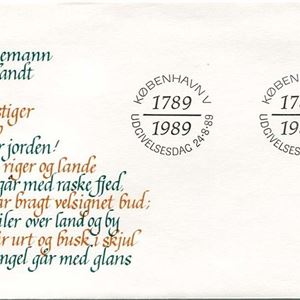 emann
andt
stiger
jorden!
riger og lande
går med raske fjed,
ar bragt velsignet bud;
iler over land og by
ir urt og busk i skjul
ngel går med glans
KØBENHAVN V
1789
1989
UDGIVELSESDAG 24-8-89
KØBENHAVN
1789
1989
UDGIVELSESDAG